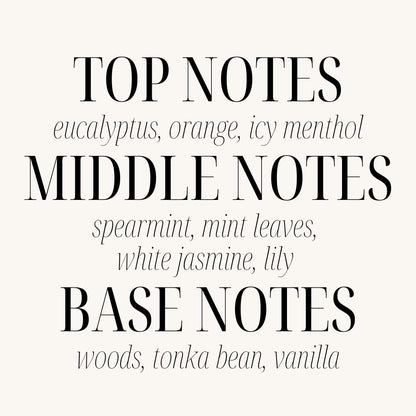 TOP NOTES
eucalyptus, orange, icy menthol
MIDDLE NOTES
spearmint, mint leaves,
white jasmine, lily
BASE NOTES
woods, tonka bean, vanilla